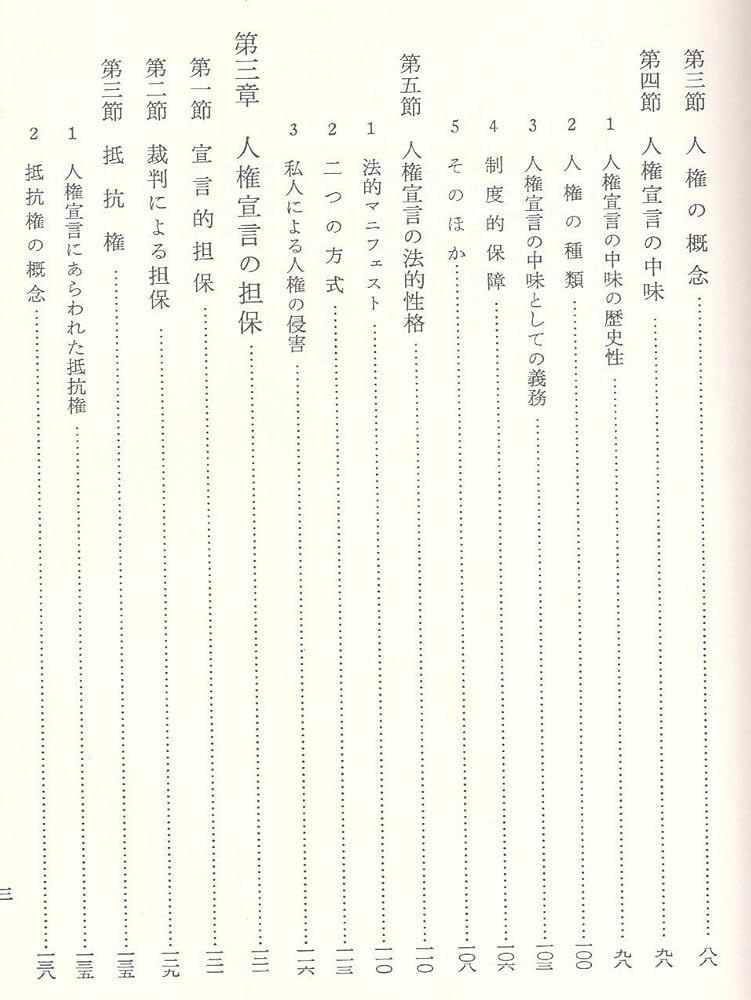 第三節 人権の概念……八八
第四節 人権宣言の中味……九八
1 人権宣言の中味の歴史性……九八
2 人権の種類……一〇〇
3 人権宣言の中味としての義務……一〇三
4 制度的保障……一〇六
5 そのほか……一〇八
第五節 人権宣言の法的性格……一一〇
1 法的マニフェスト……一一〇
2 二つの方式……一一三
3 私人による人権の侵害……一一六
第三章 人権宣言の担保……一二一
第一節 宣言的担保……一二一
第二節 裁判による担保……一二九
第三節 抵抗権……一三五
1 人権宣言にあらわれた抵抗権……一三五
2 抵抗権の概念……一三八
三